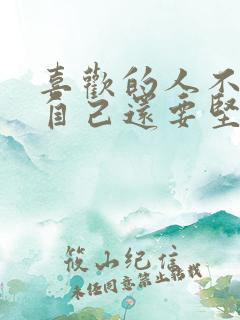 喜歡的人不
自己還要堅
筱山纪信
未经同意禁止转载